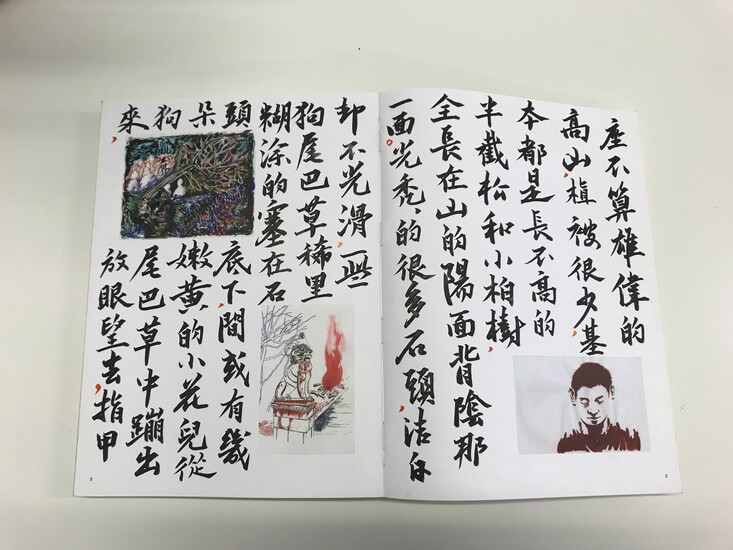 座不算雄偉的
高山,植被很少,基
本都是長不高的
半截松和小柏樹,
全長在山的陽面背陰那
一面。光禿、的很多石頭,洁白
却不光滑,一些
狗尾巴草稀里
糊涂的塞在石
頭底下,間或有幾
朵嫩黃的小花兒從
狗尾巴草中蹦出
來,放眼望去,指甲